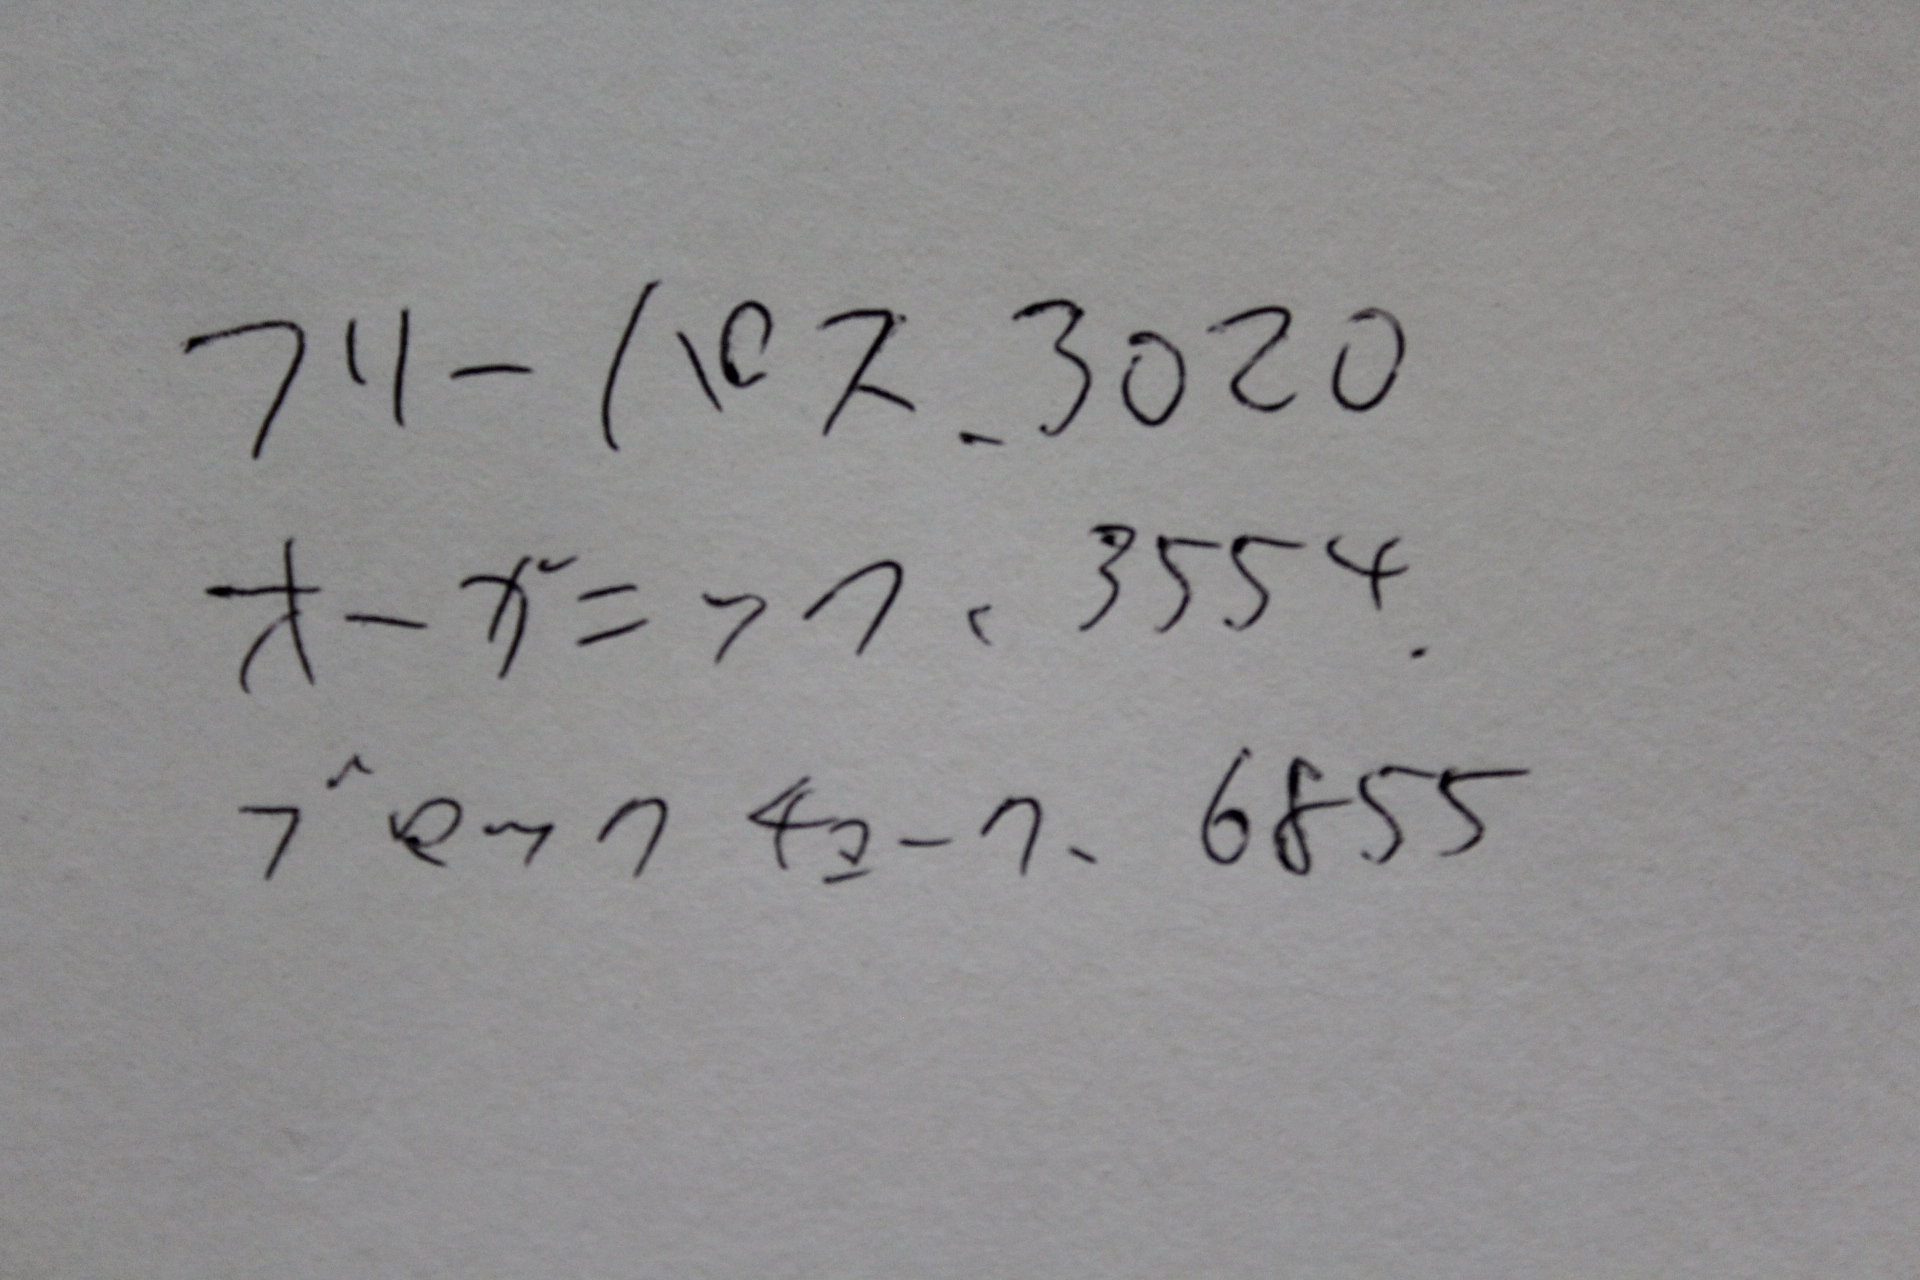 フリーパス、3020
オーガニック、3554.
ブロックチェーン、6855